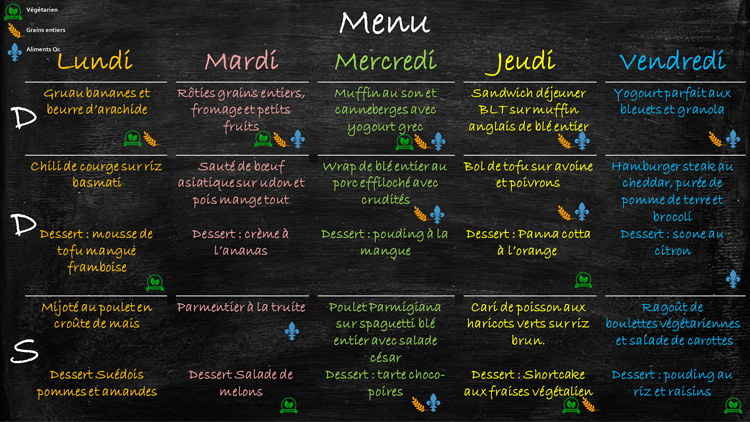 Végétarien
Menu
Grains entiers
Aliments Qc
Lundi
Mardi
Mercredi
Jeudi
Vendredi
D
Gruau bananes et
beurre d'arachide
Rôties grains entiers,
fromage et petits
fruits
Muffin au son et
canneberges avec
yogourt grec
Sandwich déjeuner
BLT sur muffin
anglais de blé entier
Yogourt parfait aux
bleuets et granola
D
Chili de courge sur riz
basmati
Dessert : mousse de
tofu mangue
framboise
Sauté de bœuf
asiatique sur udon et
pois mange tout
Dessert : crème à
l'ananas
Wrap de blé entier au
porc effiloché avec
crudités
Dessert : pouding à la
mangue
Bol de tofu sur avoine
et poivrons
Dessert : Panna cotta
à l'orange
Hamburger steak au
cheddar, purée de
pomme de terre et
brocoli
Dessert : scone au
citron
S
Mijoté au poulet en
croûte de maïs
Dessert Suédois
pommes et amandes
Parmentier à la truite
Dessert Salade de
melons
Poulet Parmigiana
sur spaguetti blé
entier avec salade
césar
Dessert : tarte choco-
poires
Cari de poisson aux
haricots verts sur riz
brun.
Dessert : Shortcake
aux fraises végétalien
Ragoût de
boulettes végétariennes
et salade de carottes
Dessert : pouding au
riz et raisins